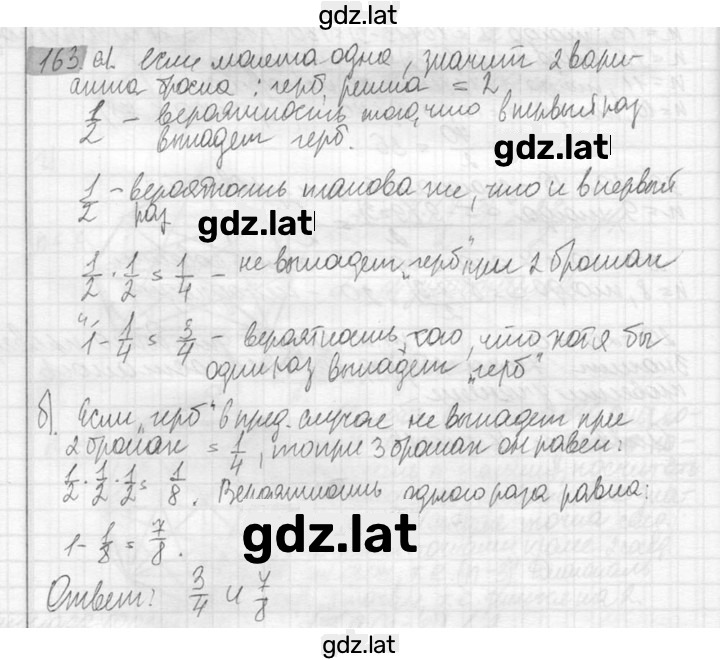 gdz.lat
163 а). если монета одна, значит 2 вари-
анта броска: герб, решка = 2
1/2 - вероятность того, что в первый раз
выпадет герб.
gdz.lat
1/2 - вероятность такова же, что и в первый
раз
gdz.lat
1/2 · 1/2 = 1/4 - не выпадет "герб" при 2 бросках
1 - 1/4 = 3/4 - вероятность того, что хотя бы
один раз выпадет "герб"
б). Если "герб" в пред. случае не выпадет при
2 бросках = 1/4, то при 3 бросках он равен:
1/2 · 1/2 · 1/2 = 1/8. Вероятность одного раза равна:
1 - 1/8 = 7/8.
gdz.lat
Ответ: 3/4 и 7/8
gdz.lat